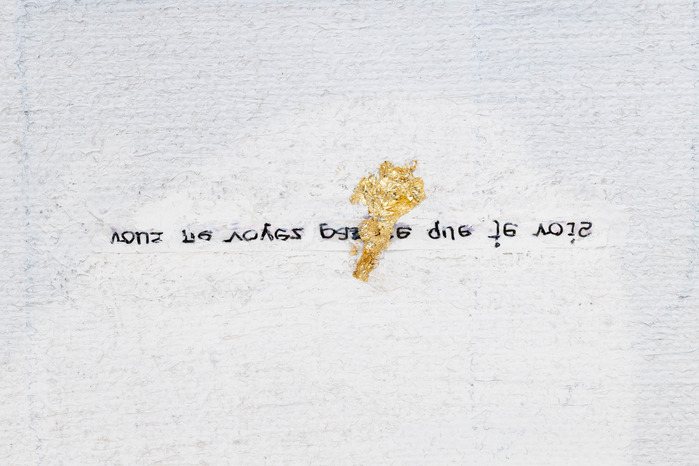 vous ne voyez pas ce que je vois